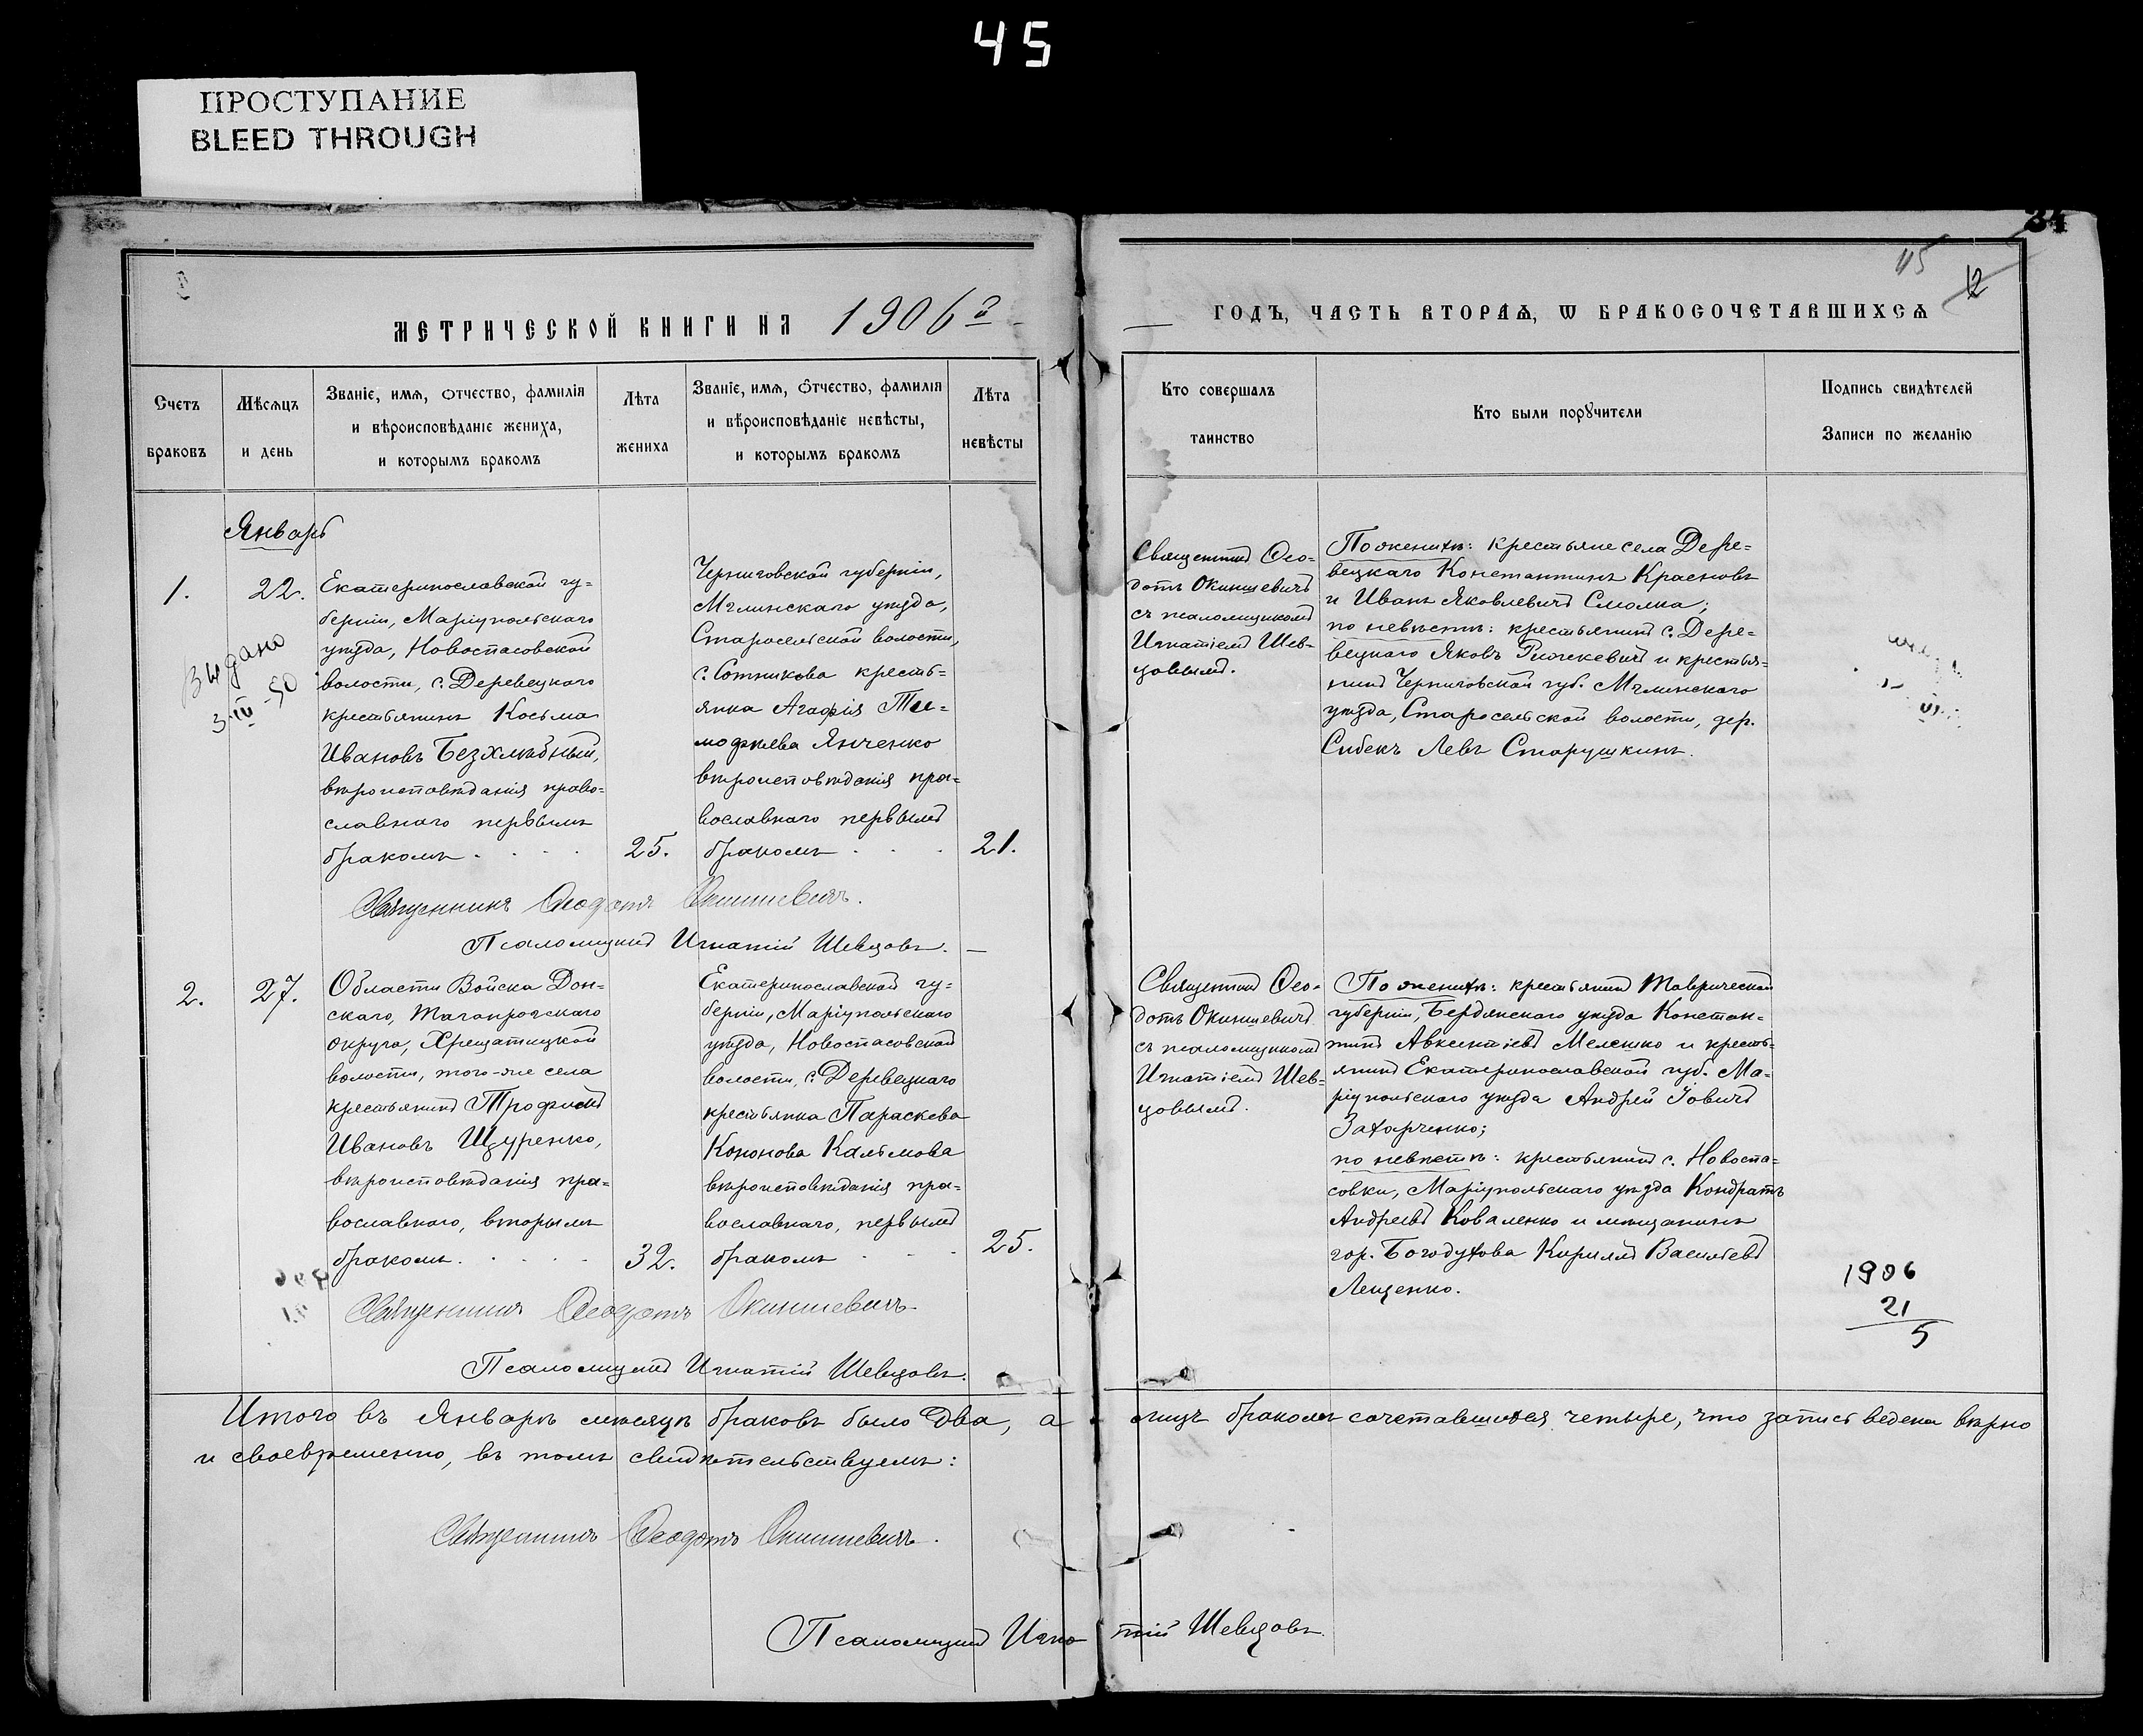 45
ПРОСТУПАНИЕ
BLEED THROUGH
34
45
12
МЕТРИЧЕСКОЙ КНИГИ НА 1906 й
ГОДЪ, ЧАСТЬ ВТОРАѦ, Ѡ БРАКОСОЧЕТАВШИХСѦ
Счетъ
браковъ
Мѣсѧцъ
и день
Званіе, имѧ, отчество, фамилія
и вѣроисповѣданіе жениха,
и которымъ бракомъ
Лѣта
жениха
Званіе, имѧ, отчество, фамилія
и вѣроисповѣданіе невѣсты,
и которымъ бракомъ
Лѣта
невѣсты
Кто совершалъ
таинство
Кто были порꙋчители
Подпись свидѣтелей
Записи по желанію
Январь
1.
22.
Выдано
3-IV-50
Екатеринославской гу-
берніи, Маріупольскаго
уѣзда, Новоспасовской
волости, с. Деревецкаго
крестьянинъ Косьма
Ивановъ Безхлѣбный,
вѣроисповѣданія право-
славнаго первымъ
бракомъ . . . .
25.
Черниговской губерніи,
Мглинскаго уѣзда,
Старосельской волости,
с. Сотникова кресть-
янка Агафія Ти-
мофѣева Янченко
вѣроисповѣданія пра-
вославнаго первымъ
бракомъ . . .
21.
Священникъ Ѳео-
дотъ Окиншевичъ
съ псаломщикомъ
Игнатіемъ Шев-
цовымъ.
По женихѣ: крестьяне села Дере-
вецкаго Константинъ Красновъ
и Иванъ Яковлевичъ Смолка;
по невѣстѣ: крестьянинъ с. Дере-
вецкаго Яковъ и крестья-
нинъ Черниговской губ. Мглинскаго
уѣзда, Старосельской волости, дер.
Левъ Старушкинъ.
Священникъ Ѳеодотъ Окиншевичъ.
Псаломщикъ Игнатій Шевцовъ. —
2.
27.
Области Войска Дон-
скаго, Таганрогскаго
округа, Хрещатицкой
волости, того-же села
крестьянинъ Трофимъ
Ивановъ Щуренко,
вѣроисповѣданія пра-
вославнаго, вторымъ
бракомъ. . . . .
32.
Екатеринославской гу-
берніи, Маріупольскаго
уѣзда, Новоспасовской
волости, с. Деревецкаго
крестьянка Параскева
Кононова Кальмова
вѣроисповѣданія пра-
вославнаго, первымъ
бракомъ . . .
25.
Священникъ Ѳео-
дотъ Окиншевичъ
съ псаломщикомъ
Игнатіемъ Шев-
цовымъ.
По женихѣ: крестьянинъ Таврической
губерніи, Бердянскаго уѣзда Констан-
тинъ Авксентіевъ Мелешко и кресть-
янинъ Екатеринославской губ. Ма-
ріупольскаго уѣзда Андрей Іовичъ
Захарченко;
по невѣстѣ: крестьянинъ с. Новоспа-
совки, Маріупольскаго уѣзда Кондратъ
Андреевъ Коваленко и мѣщанинъ
гор. Богодухова Кириллъ Васильевъ
Лещенко.
1906
21
5
Священникъ Ѳеодотъ Окиншевичъ.
Псаломщикъ Игнатій Шевцовъ.
Итого въ Январѣ мѣсяцѣ браковъ было два, а лицъ бракомъ сочетавшихся четыре, что запись ведена вѣрно
и своевременно, въ томъ свидѣтельствуемъ:
Священникъ Ѳеодотъ Окиншевичъ.
Псаломщикъ Игнатій Шевцовъ.